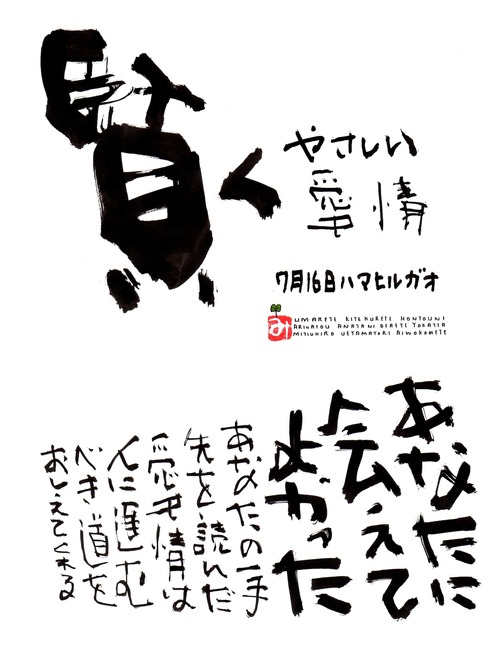 賢く
やさしい
愛情
7月16日ハマヒルガオ
み
UMARETE KITEKURETE HONTOUNI
ARIGATOU ANATANI DEAETE YOKATTA
MITSUHIRO UETAMATORI AIWOKOMETE
あなたに
会えて
よかった
あなたの一手
先を読んだ
愛情は
人に進む
べき道を
おしえてくれる